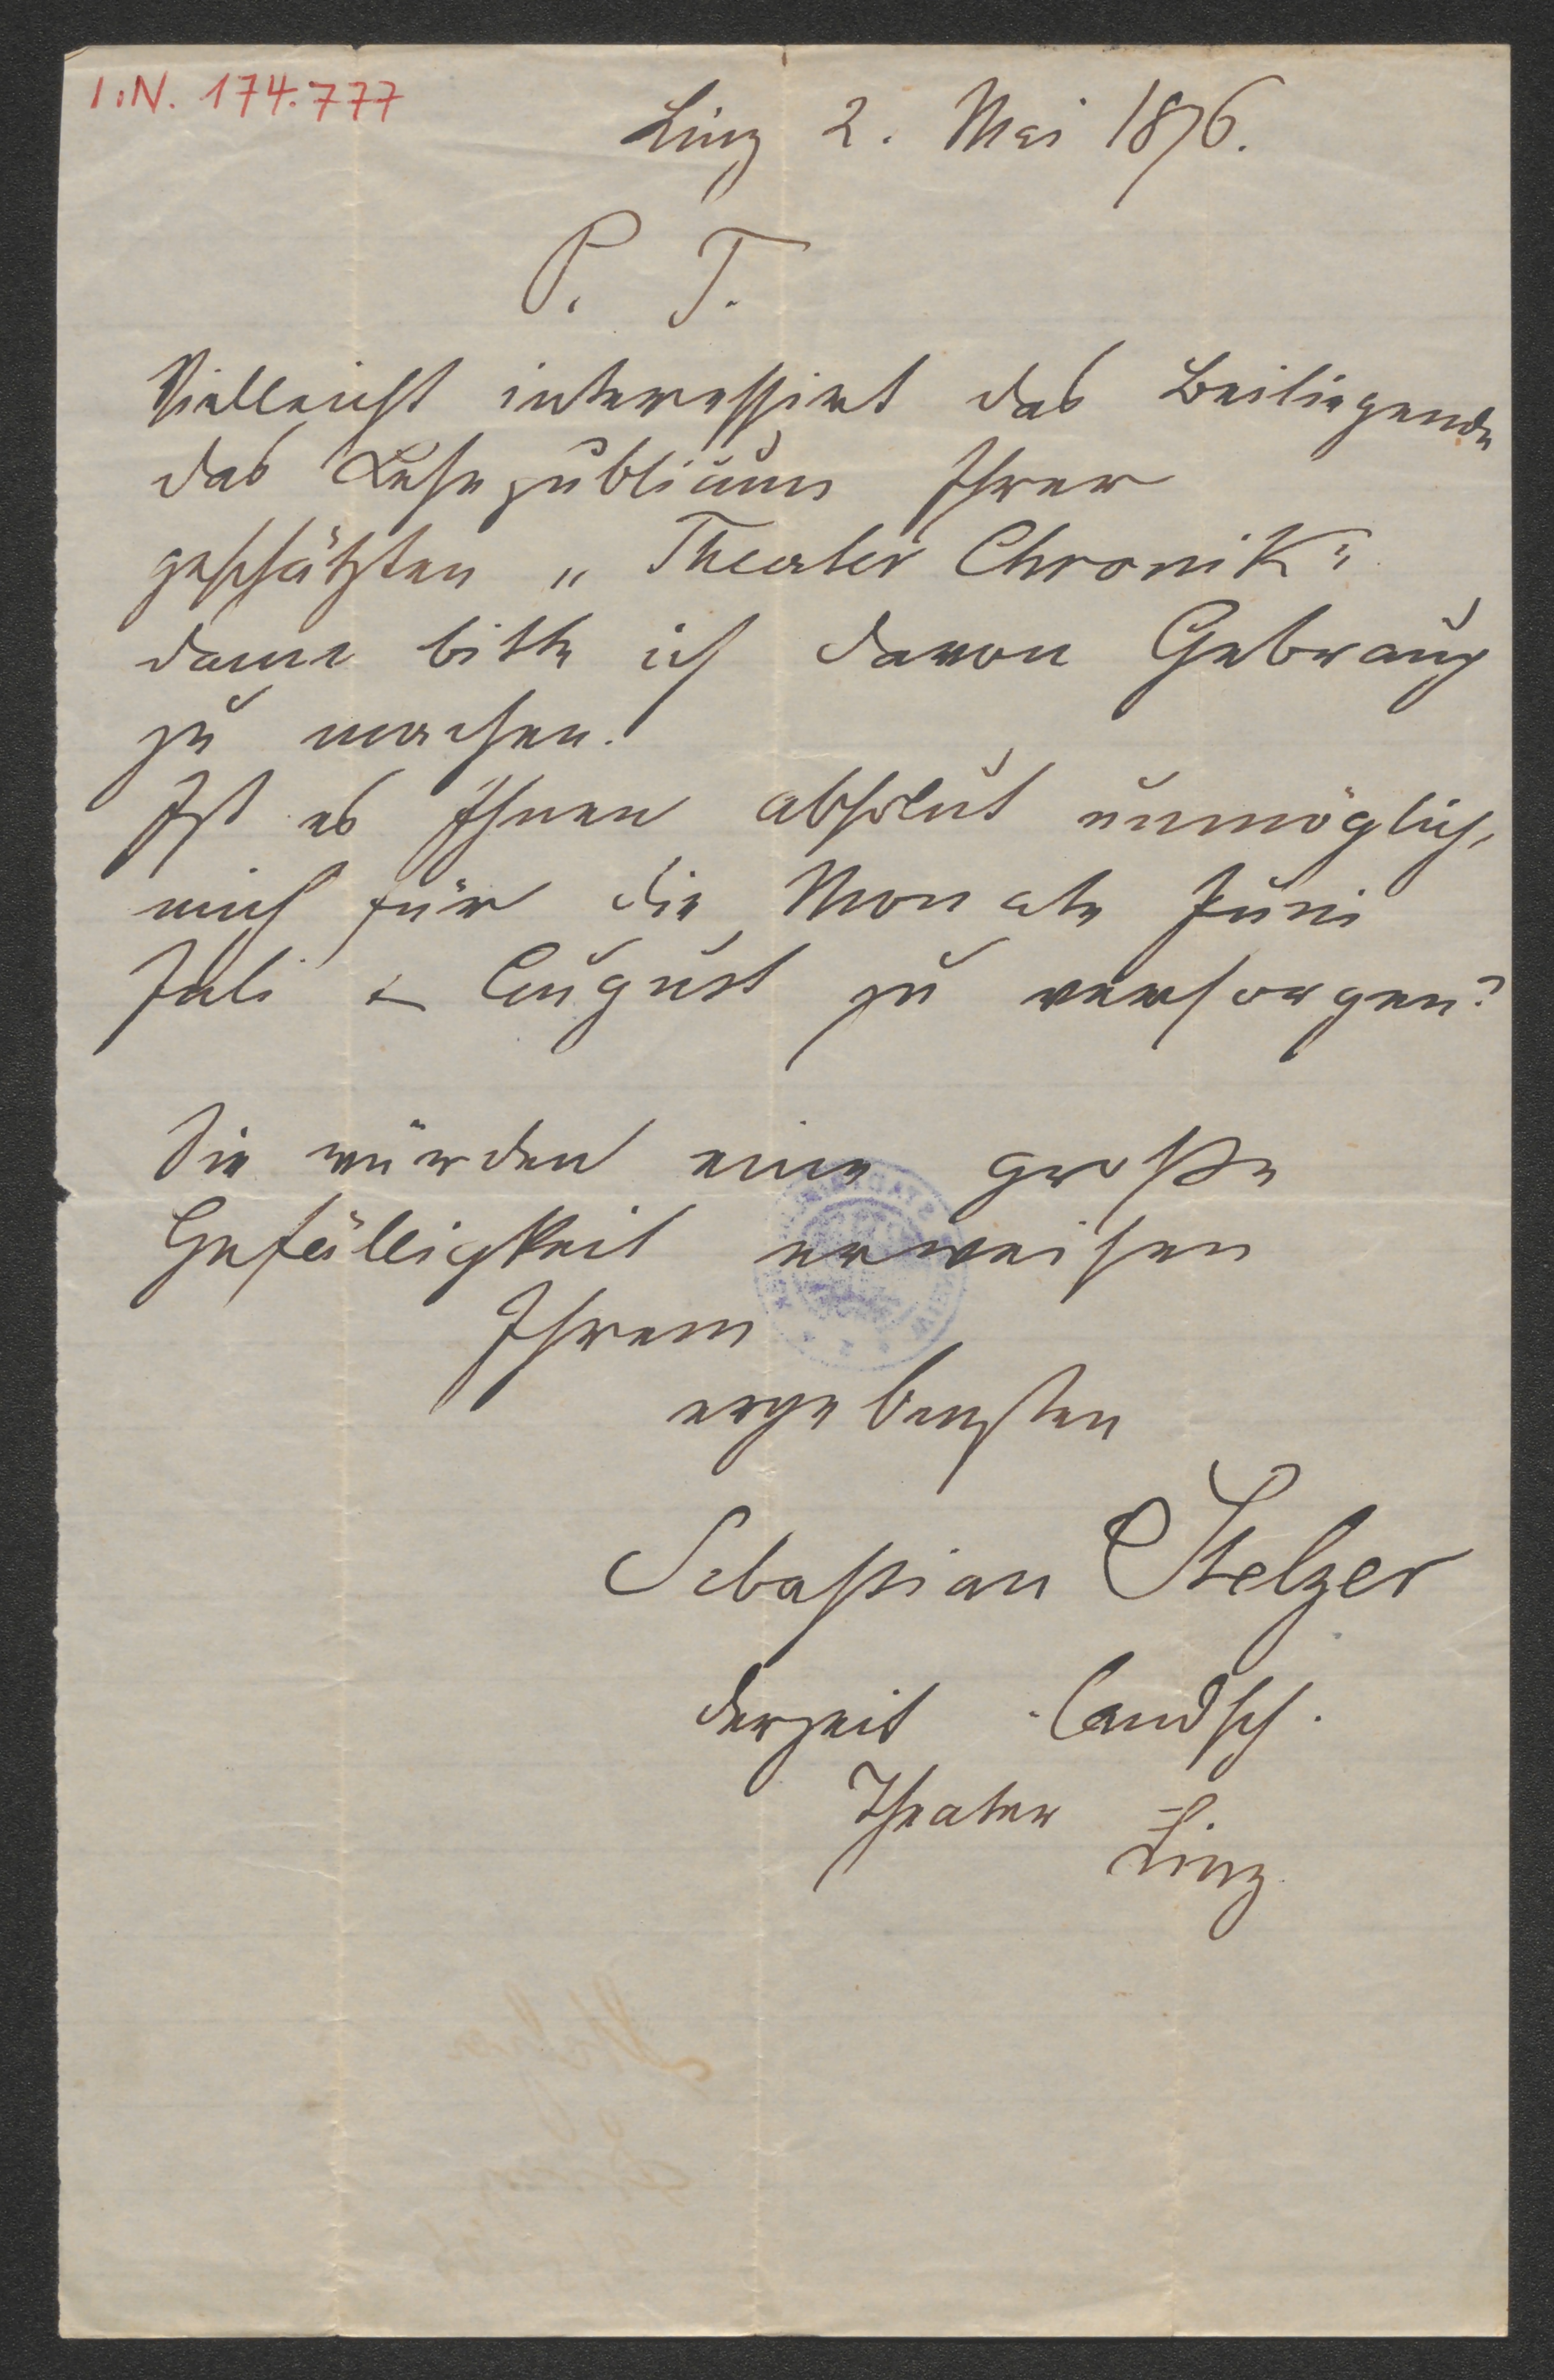 I.N. 174.777
Linz 2. Mai 1876.
P. T.
Vielleicht interessirt das Beiliegende
das Lesepublicum Ihrer
geschätzten „Theater Chronik"
dann bitte ich davon Gebrauch
zu machen.
Ist es Ihnen absolut unmöglich,
mich für die Monate Juni
Juli & August zu versorgen?
Sie würden eine große
Gefälligkeit erweisen
Ihrem
ergebensten
Sebastian Stelzer
derzeit landsch.
Theater
Linz